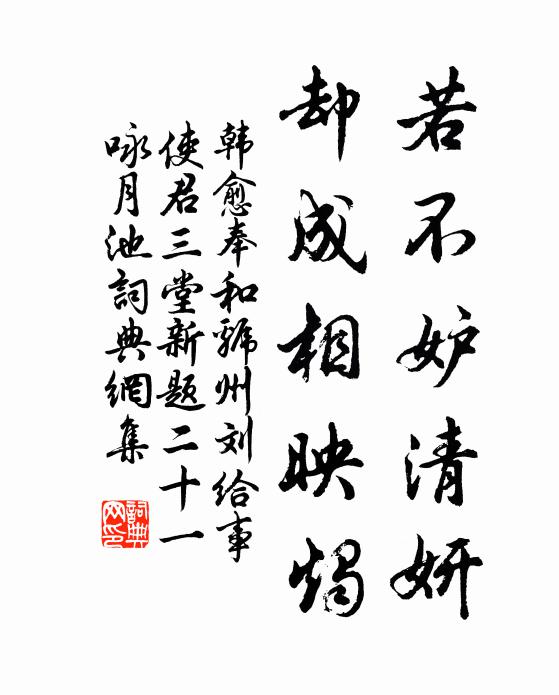 若不妒清妍
却成相映烛
韩愈奉和虢州刘给事
使君三堂新题二十一
咏月池詞典網集
詞典网印